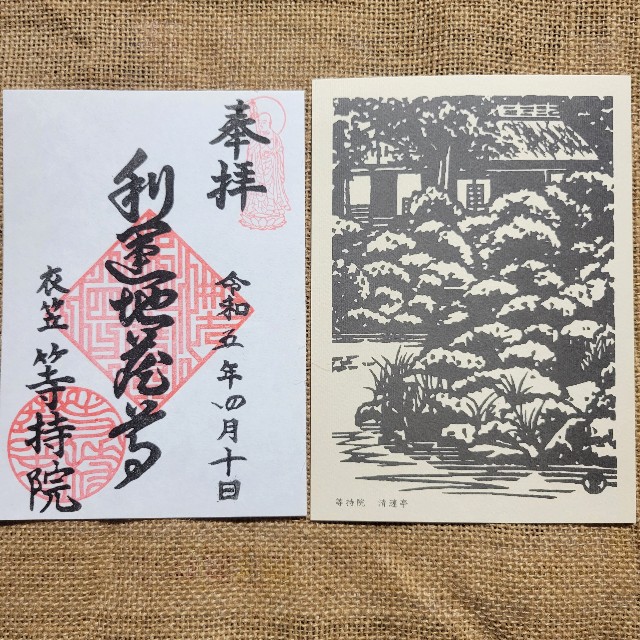 奉拝
令和五年四月十日
利運地蔵尊
衣笠 等持院
等持院 清漣亭